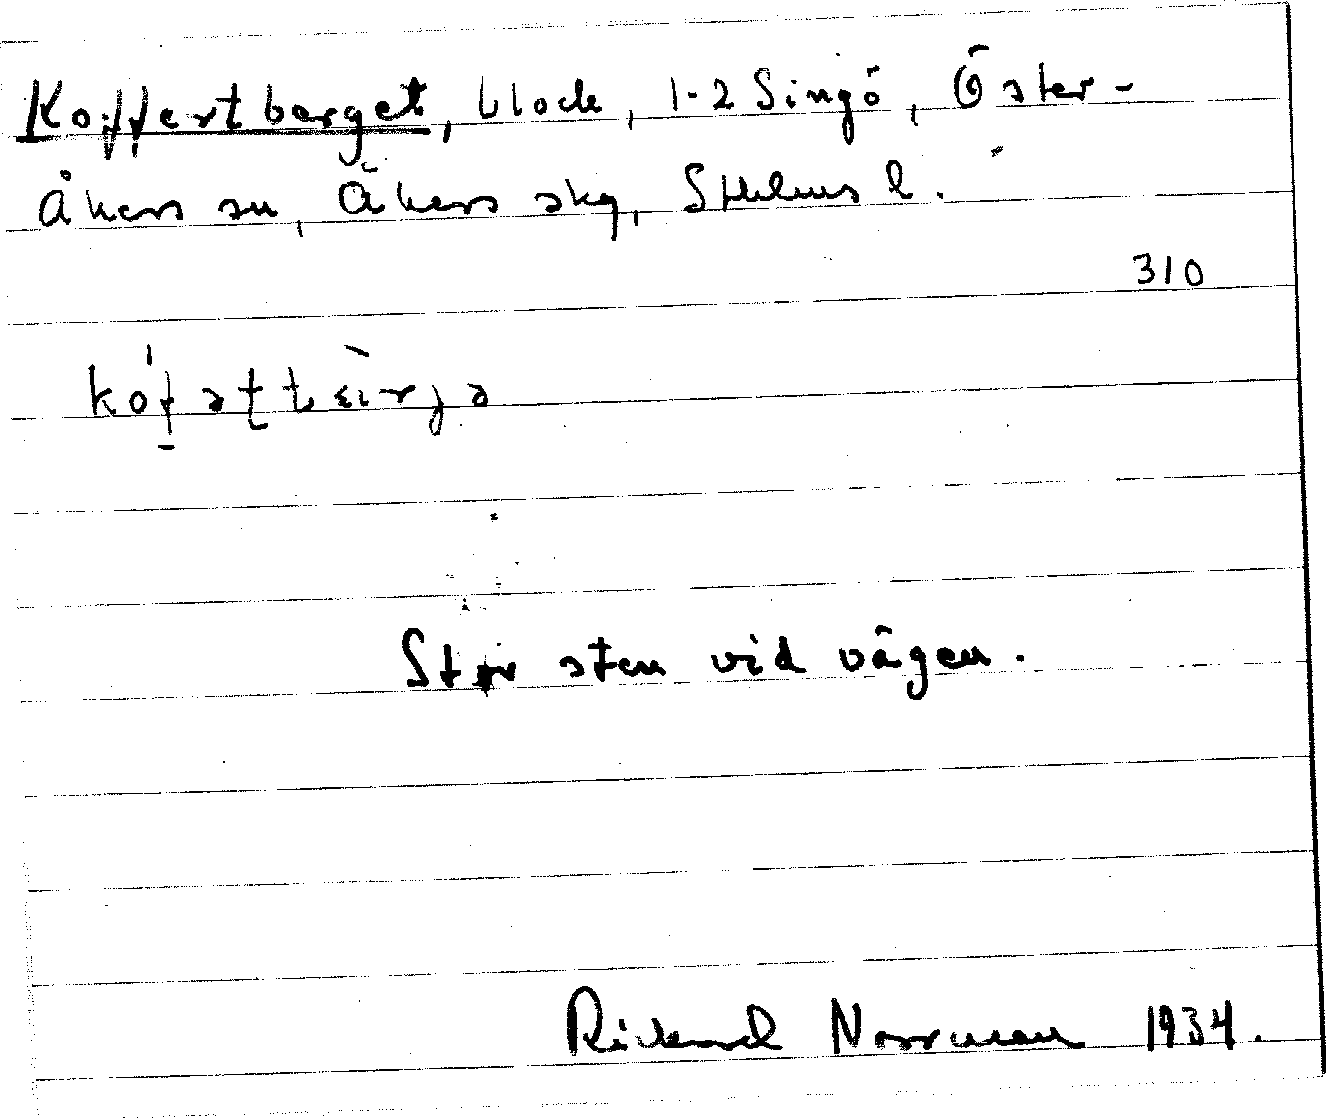 Koffertberget, block, 1-2 Singö, Öster-
Åkers sn, Åkers skg, Sthlms l.
310
Stor sten vid vägen.
Rickard Norrman 1934.